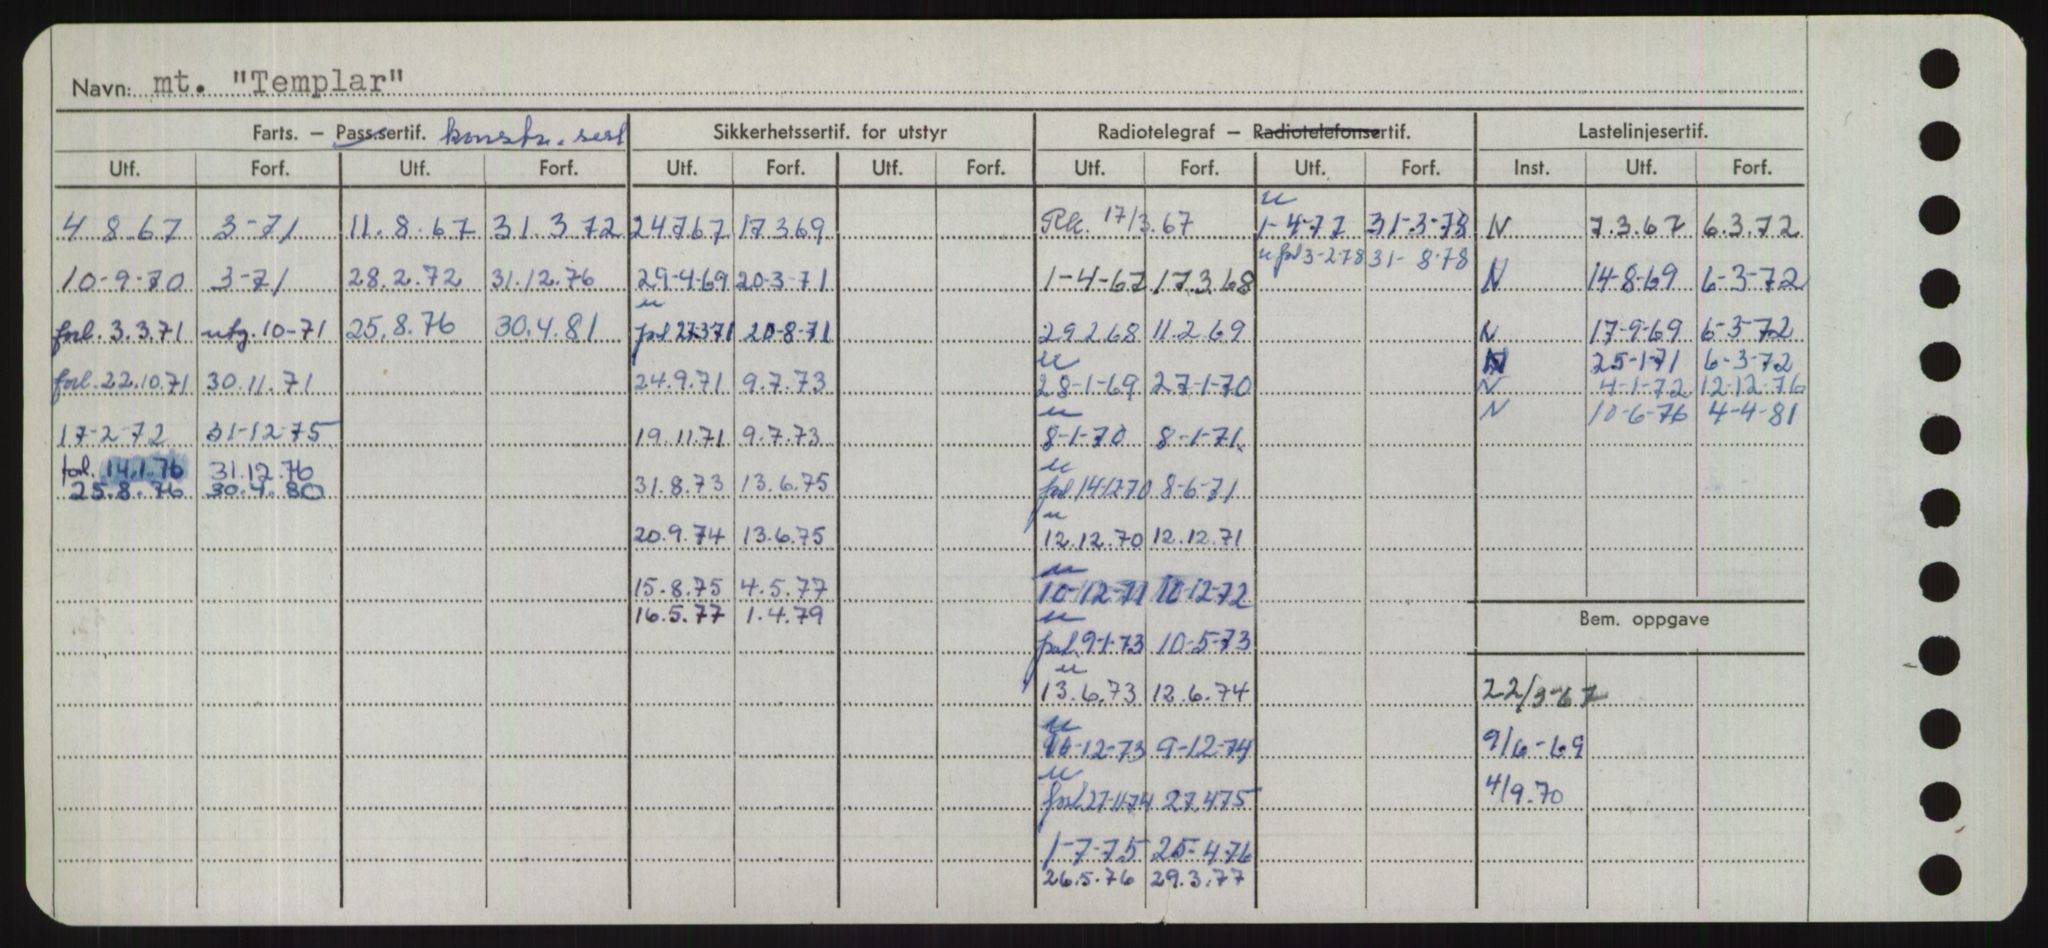 Navn: mt. "Templar"
Farts. – Pass.sertif. konstr. sert Sikkerhetssertif. for utstyr Radiotelegraf – Radiotelefonsertif. Lastelinjesertif.
Utf. Forf. Utf. Forf. Utf. Forf. Utf. Forf. Utf. Forf. Utf. Forf. Inst. Utf. Forf.
u
4.8.67 3-71 11.8.67 31.3.72 24767 17369 Rk. 17/3.67 1-4-77 31-3-78 N 7.3.67 6.3.72
u forl 3-278 31-8-78
10-9-70 3-71 28.2.72 31.12.76 29-4-69 20-3-71 1-4-67 17.3.68 N 14-8-69 6-3-72
u
forl. 3.3.71 utg. 10-71 25.8.76 30.4.81 forl 27371 20-8-71 29268 11.2.69 N 17-9-69 6-3-72
u N 25-1-71 6-3-72
forl. 22.10.71 30.11.71 24.9.71 9.7.73 28-1-69 27-1-70 N 4-1-72 12-12-76
u N 10-6-76 4-4-81
17-2-72 31-12-75 19.11.71 9.7.73 8-1-70 8-1-71
forl. 14.1.76 31.12.76 u
25.8.76 30.4.80 31.8.73 13.6.75 forl 141270 8-6-71
u
20.9.74 13.6.75 12.12.70 12.12.71
u
15.8.75 4.5.77 10-12-71 10-12-72
16.5.77 1.4.79 u
Bem. oppgave
forl. 9-1-73 10-5-73
u
13.6.73 12.6.74 22/3-67
u
10-12-73 9-12-74 9/6-69
u
forl 27-11-74 27.475 4/9.70
1-7-75 25-476
26.5.76 29.3.77